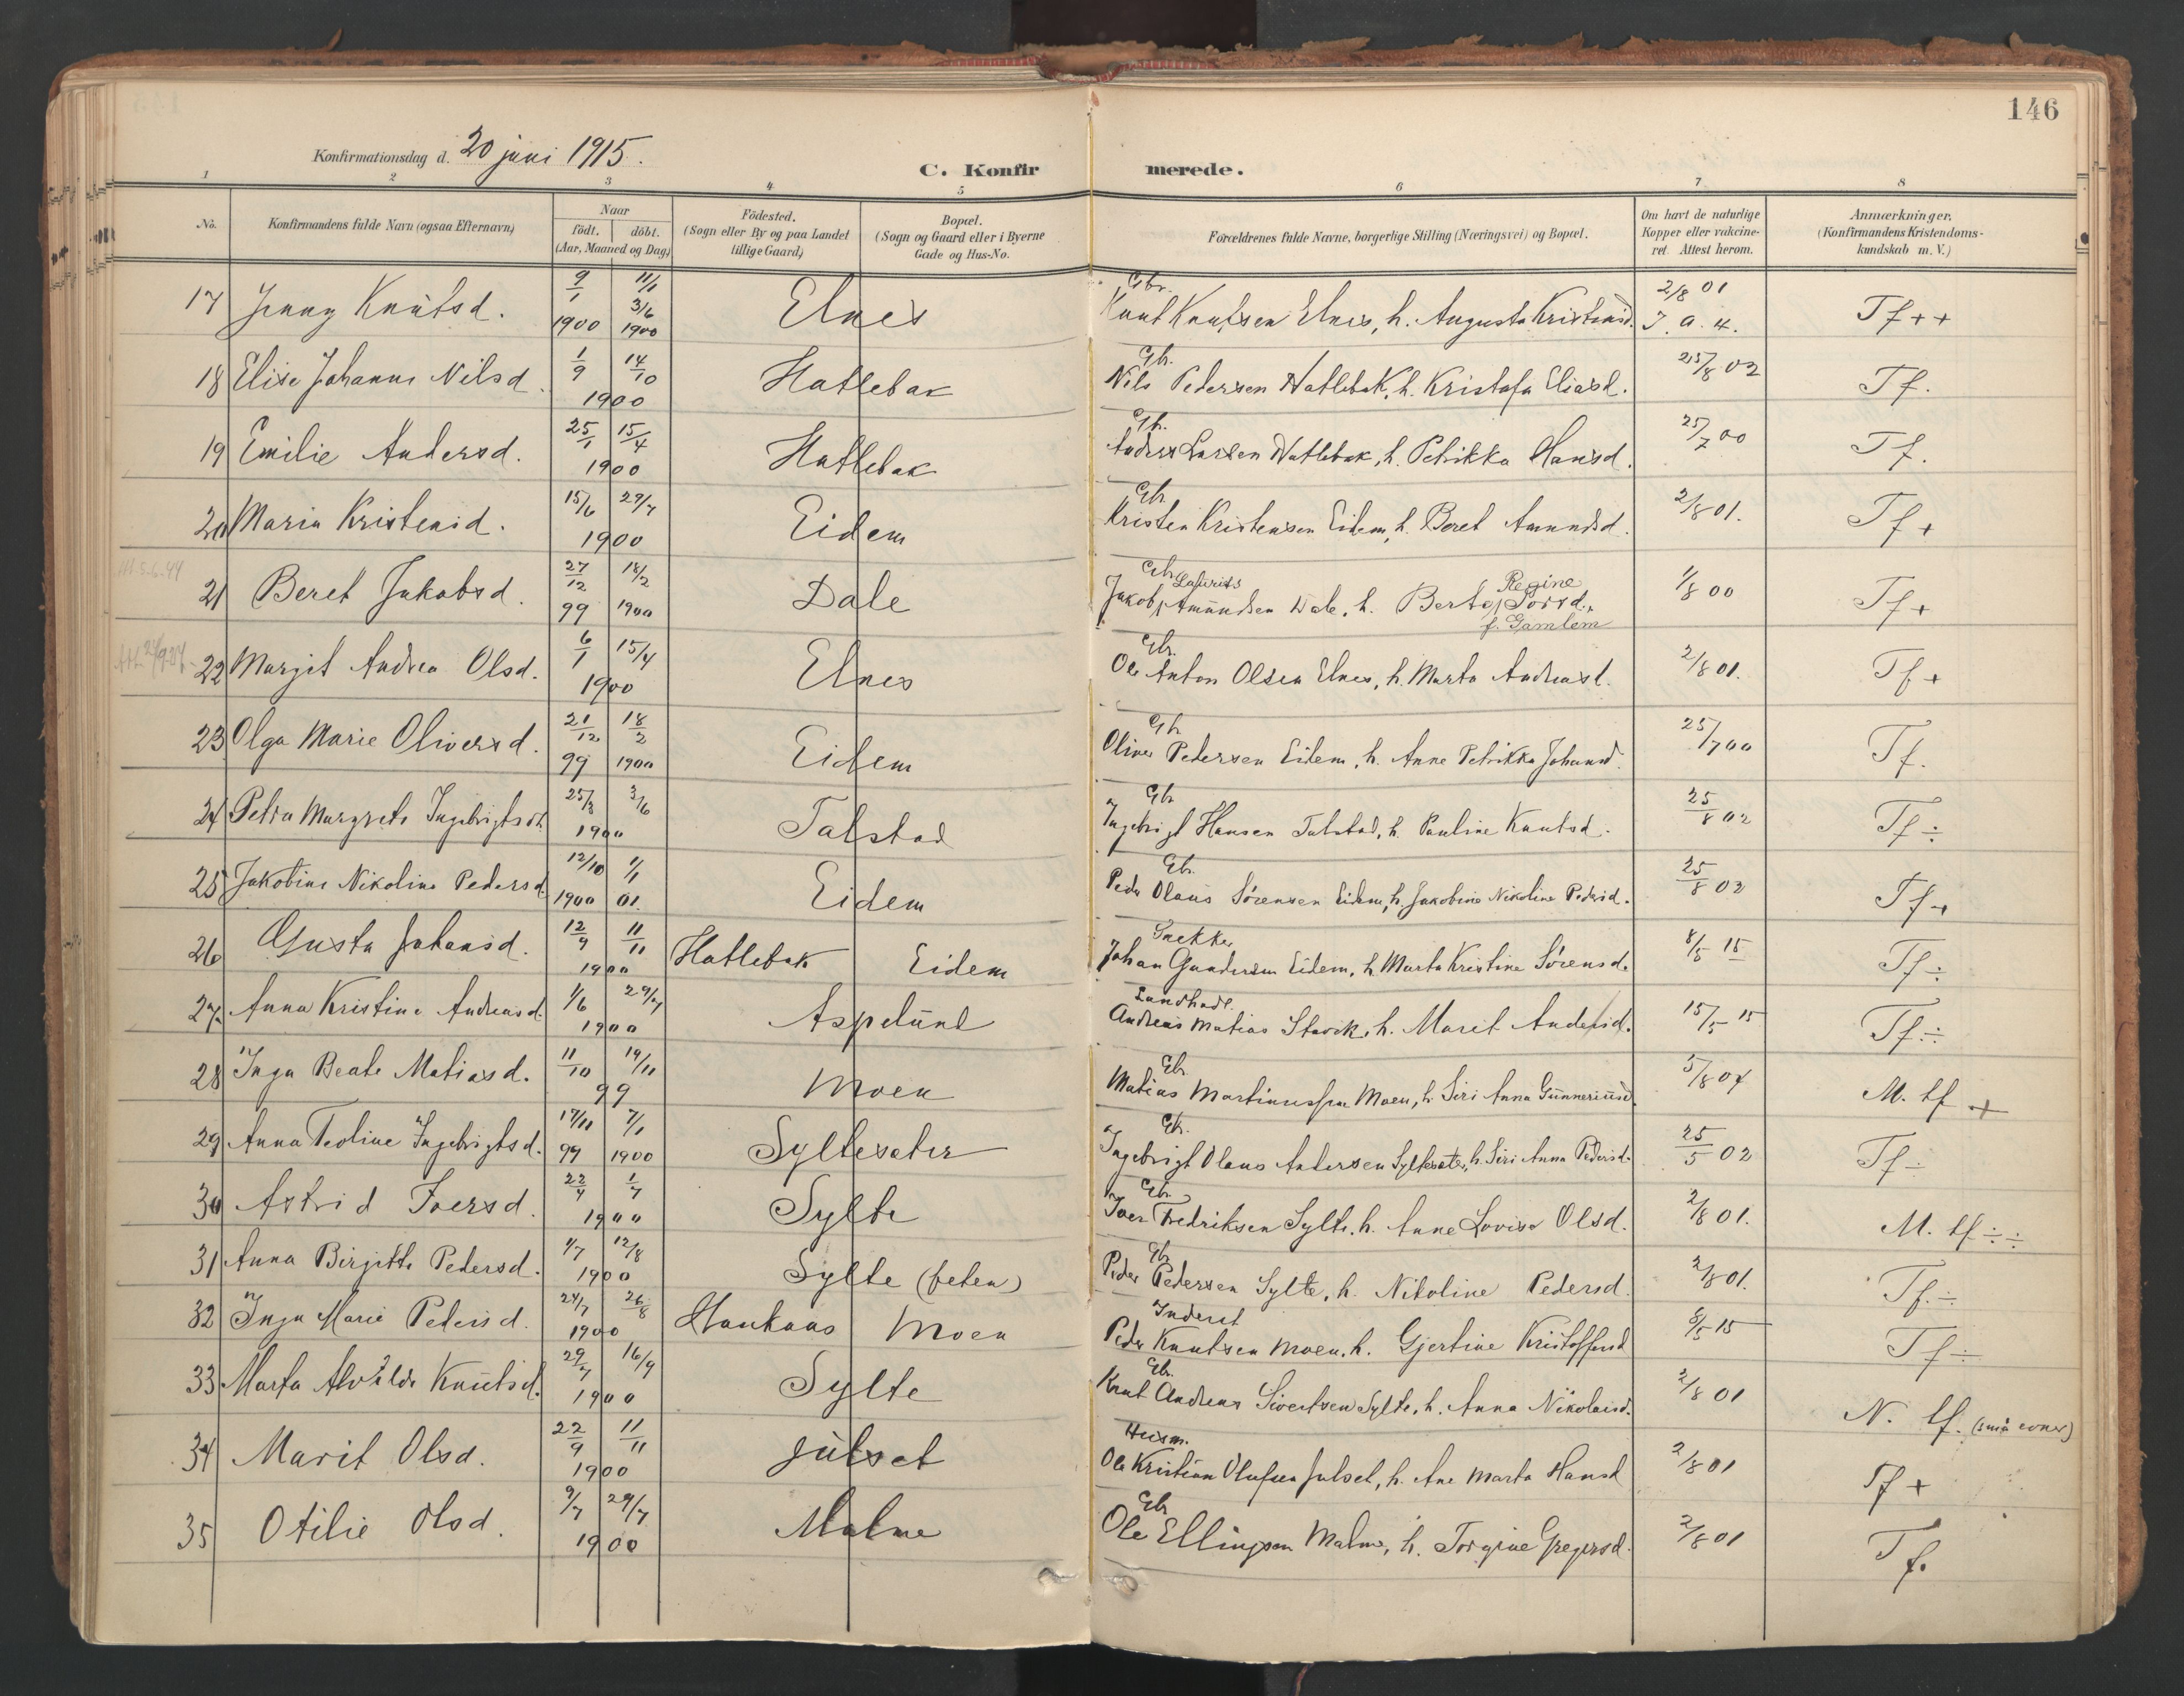 146
Konfirmationsdag d. 20 juni 1915.
C. Konfirmerede.
1 2 3 4 5 6 7 8
No. Konfirmandens fulde Navn (ogsaa Efternavn) Naar födt. döbt. (Aar, Maaned og Dag) Födested. (Sogn eller By og paa Landet tillige Gaard) Bopæl. (Sogn og Gaard eller i Byerne Gade og Hus-No. Forældrenes fulde Navne, borgerlige Stilling (Næringsvei) og Bopæl. Om havt de naturlige Kopper eller vakcineret. Attest herom. Anmærkninger. (Konfirmandens Kristendomskundskab m. V.)
17 Jenny Knutsd. 9/1 1900 11/1 3/6 1900 Elnes Gbr. Knut Knutsen Elnes, h. Augusta Kristensd. 2/8 01 J. a. 4. Tf ++
18 Elise Johanne Nilsd. 1/9 14/10 1900 Hatlebak Gb. Nils Pedersen Hatlebak, h. Kristofa Eliasd. 25/8 02 Tf.
19 Emilie Andersd. 25/1 15/4 1900 Hatlebak Gb. Anders Larsen Hatlebak, h. Petrikka Hansd. 25/7 00 Tf.
20 Maria Kristensd. 15/6 29/7 1900 Eidem Gbr. Kristen Kristensen Eidem, h. Beret Amundsd. 2/8 01. Tf +
21 Beret Jakobsd. 27/12 99 18/2 1900 Dale Gbr. Jakob Laurits Amundsen Dale, h. Berte Regine Iversd. f. Gamlem 1/8 00 Tf +
22 Margit Andrea Olsd. 6/1 15/4 1900 Elnes Gbr. Ole Anton Olsen Elnes, h. Marta Andreasd. 2/8 01. Tf +
23 Olga Marie Oliversd. 21/12 99 18/2 1900 Eidem Gb Oliver Pedersen Eidem, h. Anne Petrikka Johansd. 25/7 00 Tf.
24 Petra Margrete Ingebrigtsd. 25/3 3/6 1900 Talstad Gb Ingebrigt Hansen Talstad, h. Pauline Knutsd. 25/8 02 Tf ÷
25 Jakobine Nikoline Pedersd. 12/10 1900 1/1 01. Eidem Gbr. Peder Olaus Sörensen Eidem, h. Jakobine Nikoline Pedersd. 25/8 02 Tf +
26 Gusta Johansd. 12/9 11/11 1900 Hatlebak Eidem Snekker Johan Gundersen Eidem, h. Marta Kristine Sörensd. 8/5 15 Tf ÷
27. Anna Kristine Andreasd. 1/6 29/7 1900 Aspelund Landhadl. Andreas Matias Stavik, h. Marit Andersd. 15/5 15 Tf ÷
28 Inga Beate Matiasd. 11/10 19/11 99 Moen Gbr. Matias Martinussen Moen, h. Siri Anna Gunneriusd. 5/8 04 M. tf +
29 Anna Teoline Ingebrigtsd. 17/11 99 7/1 1900 Syltesæter Gb. Ingebrigt Olaus Andersen Syltesæter, h. Siri Anna Pedersd. 25/5 02 Tf ÷
30 Astrid Iversd. 22/4 1/7 1900 Sylte Gbr. Iver Fredriksen Sylte, h. Anne Lovise Olsd. 2/8 01. M. tf ÷÷
31 Anna Birgitte Pedersd. 1/7 12/8 1900 Sylte Gbr Peder Pedersen Sylte, h. Nikoline Pedersd. 2/8 01. Tf. ÷
32 Inga Marie Pedersd. 24/7 26/8 1900 Haukaas Moen Inderst Peder Knutsen Moen, h. Gjertine Kristoffersd. 8/5 15 Tf ÷
33 Marta Alvilde Knutsd. 29/7 16/9 1900 Sylte Gbr. Knut Andreas Sivertsen Sylte, h. Anna Nikolaisd. 2/8 01 N. tf. (små evner)
34 Marit Olsd. 22/9 11/11 1900 Julset Husm. Ole Kristian Olufsen Julset, h. Ane Marta Hansd 2/8 01 Tf +
35 Otilie Olsd. 9/7 29/7 1900 Malme Gbr Ole Ellingsen Malme, h. Torgine Gregersd. 2/8 01 Tf.